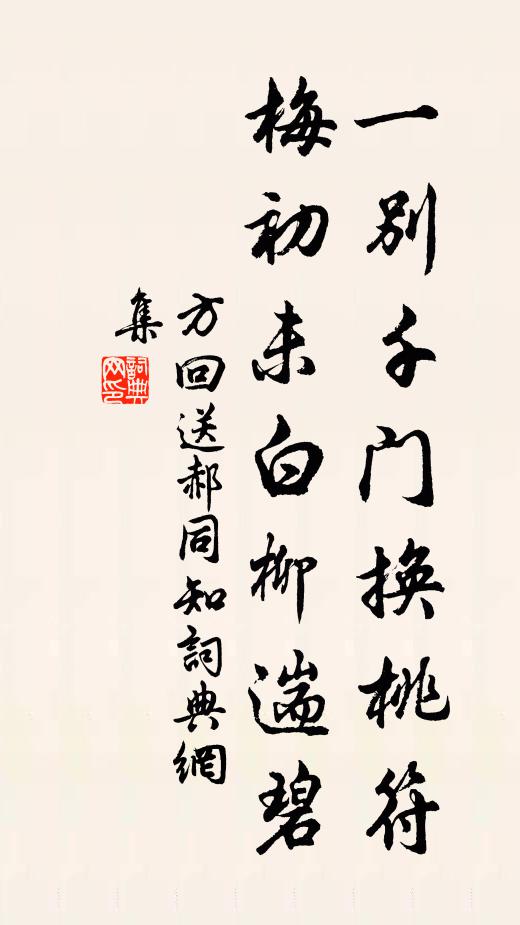 一別千门換桃符
梅初未白柳遄碧
方回送郝同知詞典網
集
詞典
网印